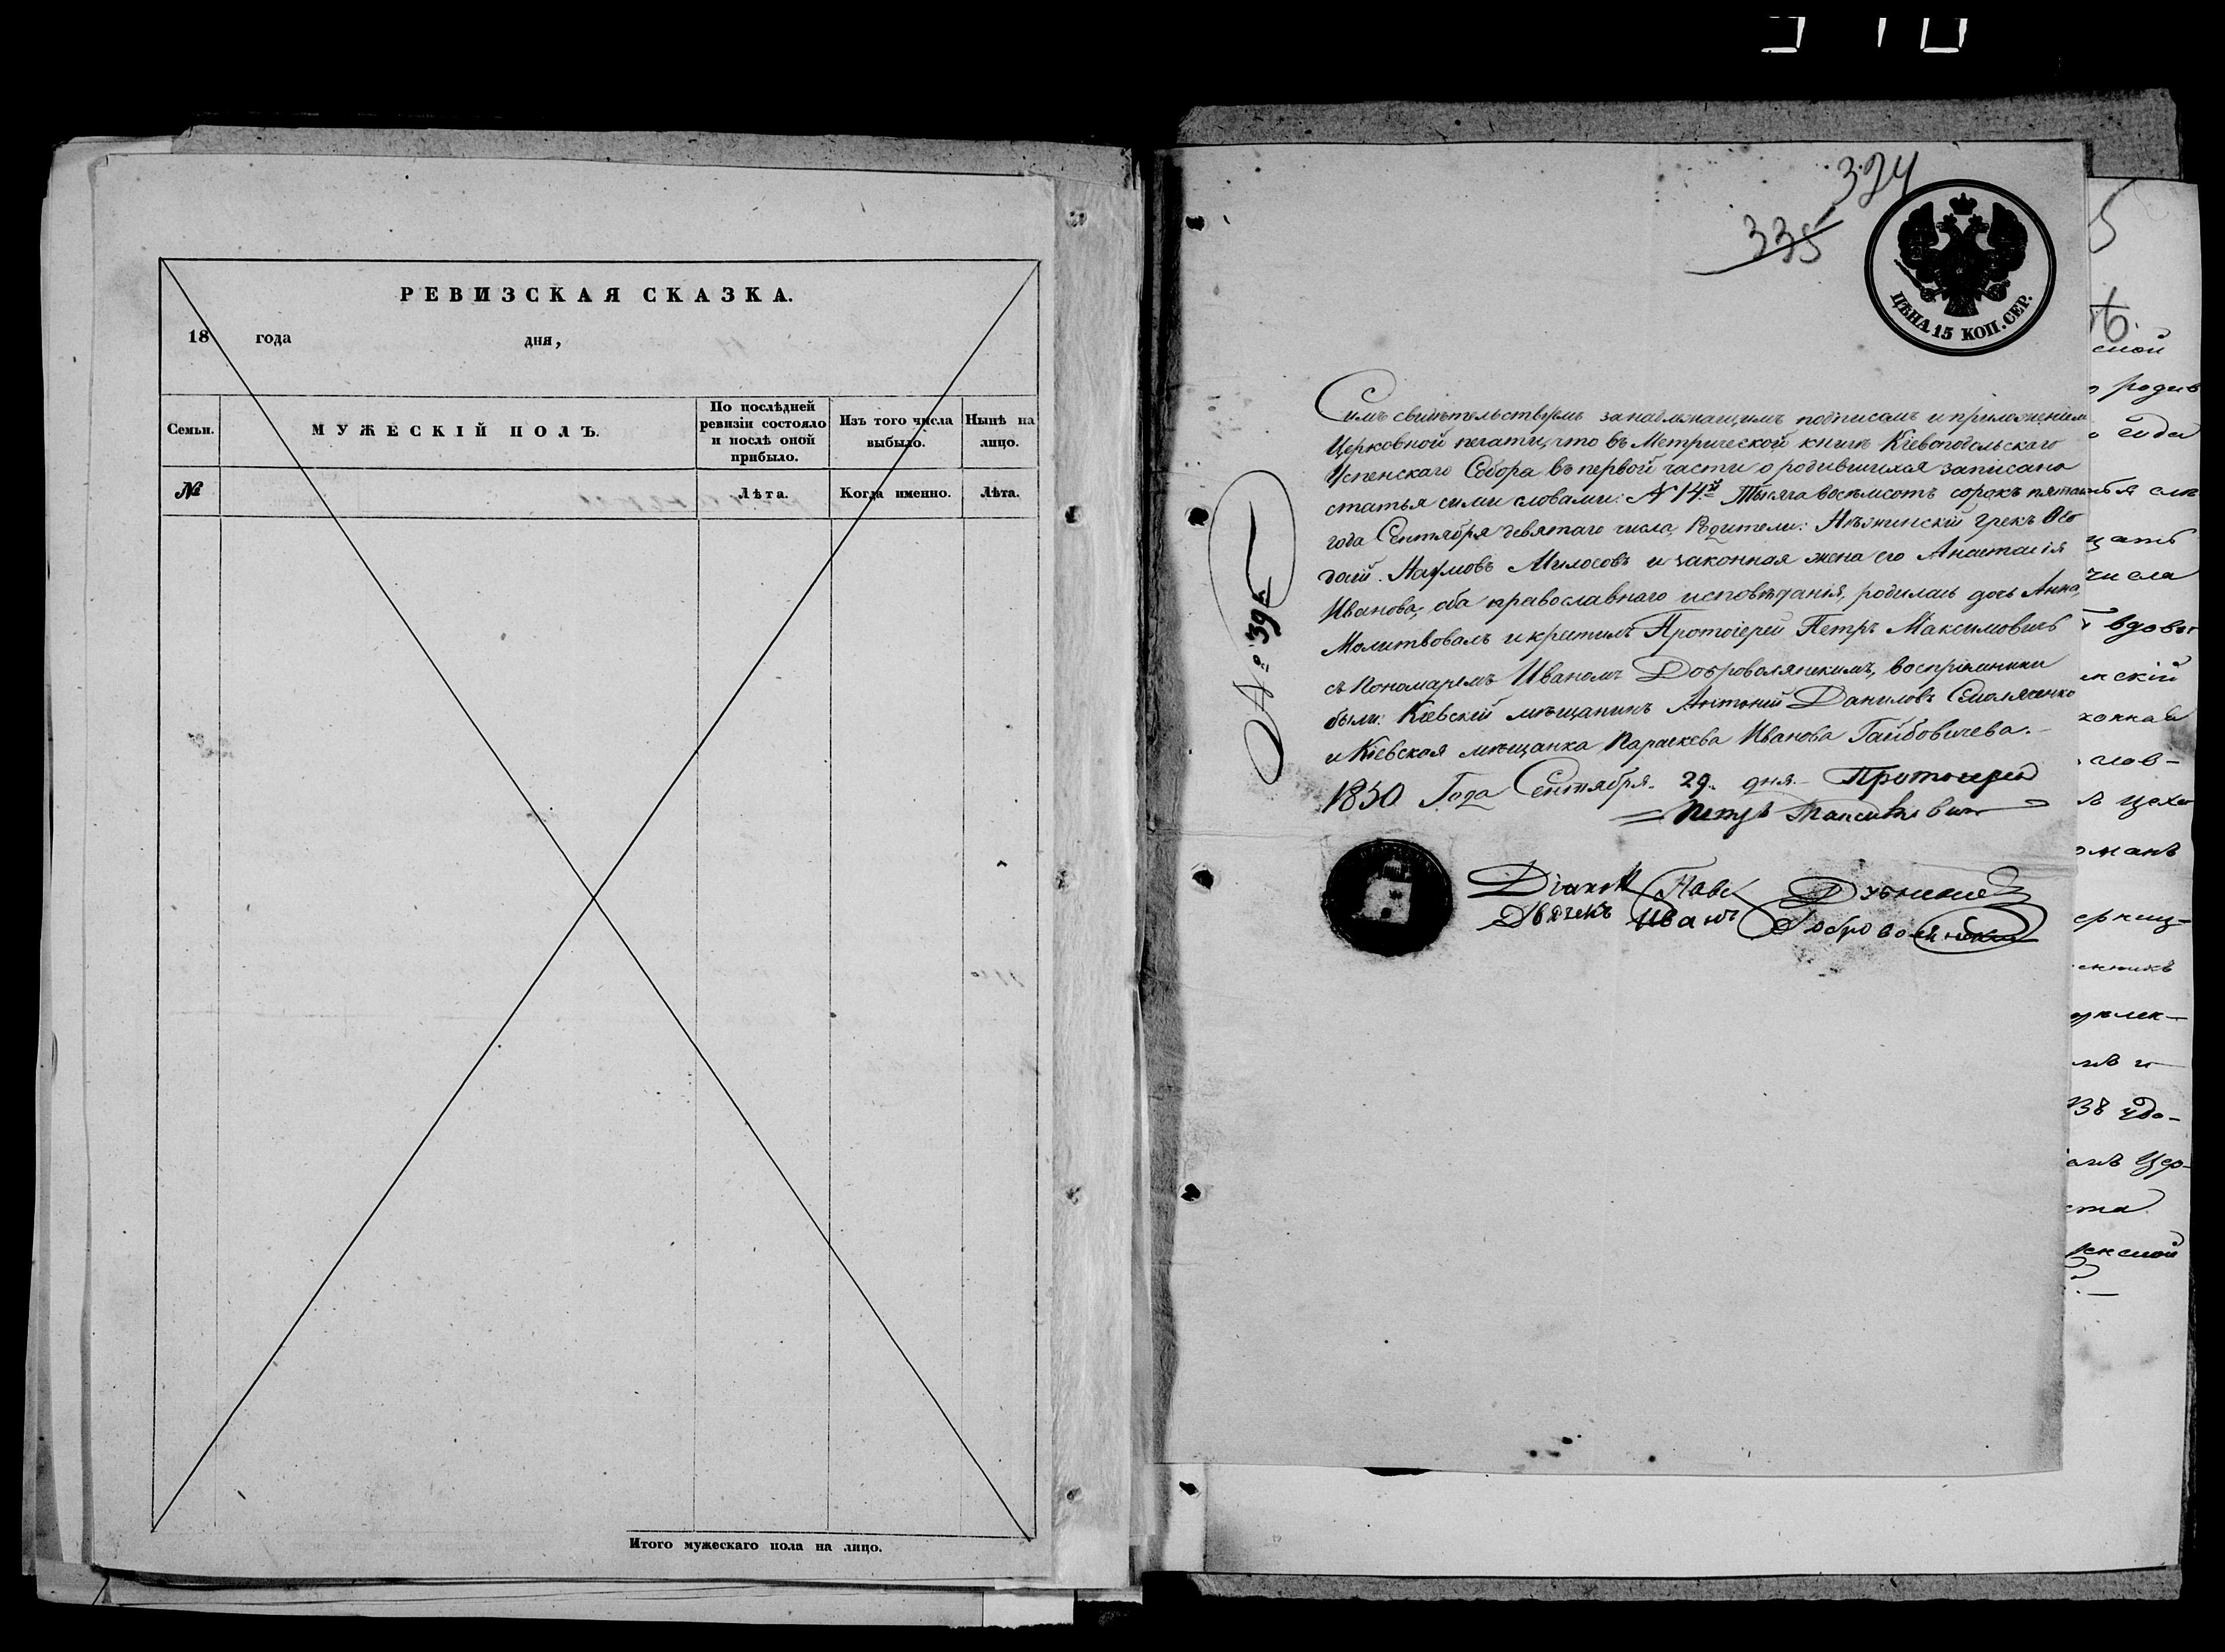 РЕВИЗСКАЯ СКАЗКА.
18 года дня,
Семьи.
МУЖЕСКІЙ ПОЛЪ.
По послѣдней
ревизіи состояло
и послѣ оной
прибыло.
Изъ того числа
выбыло.
Нынѣ на
лицо.
№
Лѣта.
Когда именно.
Лѣта.
Итого мужескаго пола на лицо.
324
335
ЦѢНА 15 КОП. СЕР.
№ 39
Симъ свидѣтельствуемъ за надлежащимъ подписомъ и приложеніемъ
Церковной печати, что въ Метрической книгѣ Кіевоподольскаго
Успенскаго Собора въ первой части о родившихся записана
статья сими словами: № 14й Тысяча восемсотъ сорокъ пятаго
года Сентября девятаго числа, Родители: Нѣжинскій Грекъ Ѳео
досій Наумовъ Милосовъ и законная жена его Анастасія
Иванова, оба православнаго исповѣданія, родилась дочь Анна,
Молитвовалъ и крестилъ Протоіерей Петръ Максимовичъ
съ Пономаремъ Иваномъ Доброволянскимъ, воспріемники
были: Кіевскій мѣщанинъ Антоній Даниловъ Смоляченко
и Кіевская мѣщанка Параскева Иванова Гайбовичева.
1850 Года Сентября 29. дня. Протоіерей
Петръ Максимовичъ
Діаконъ Павелъ
Дьячекъ Иванъ Доброволянскій